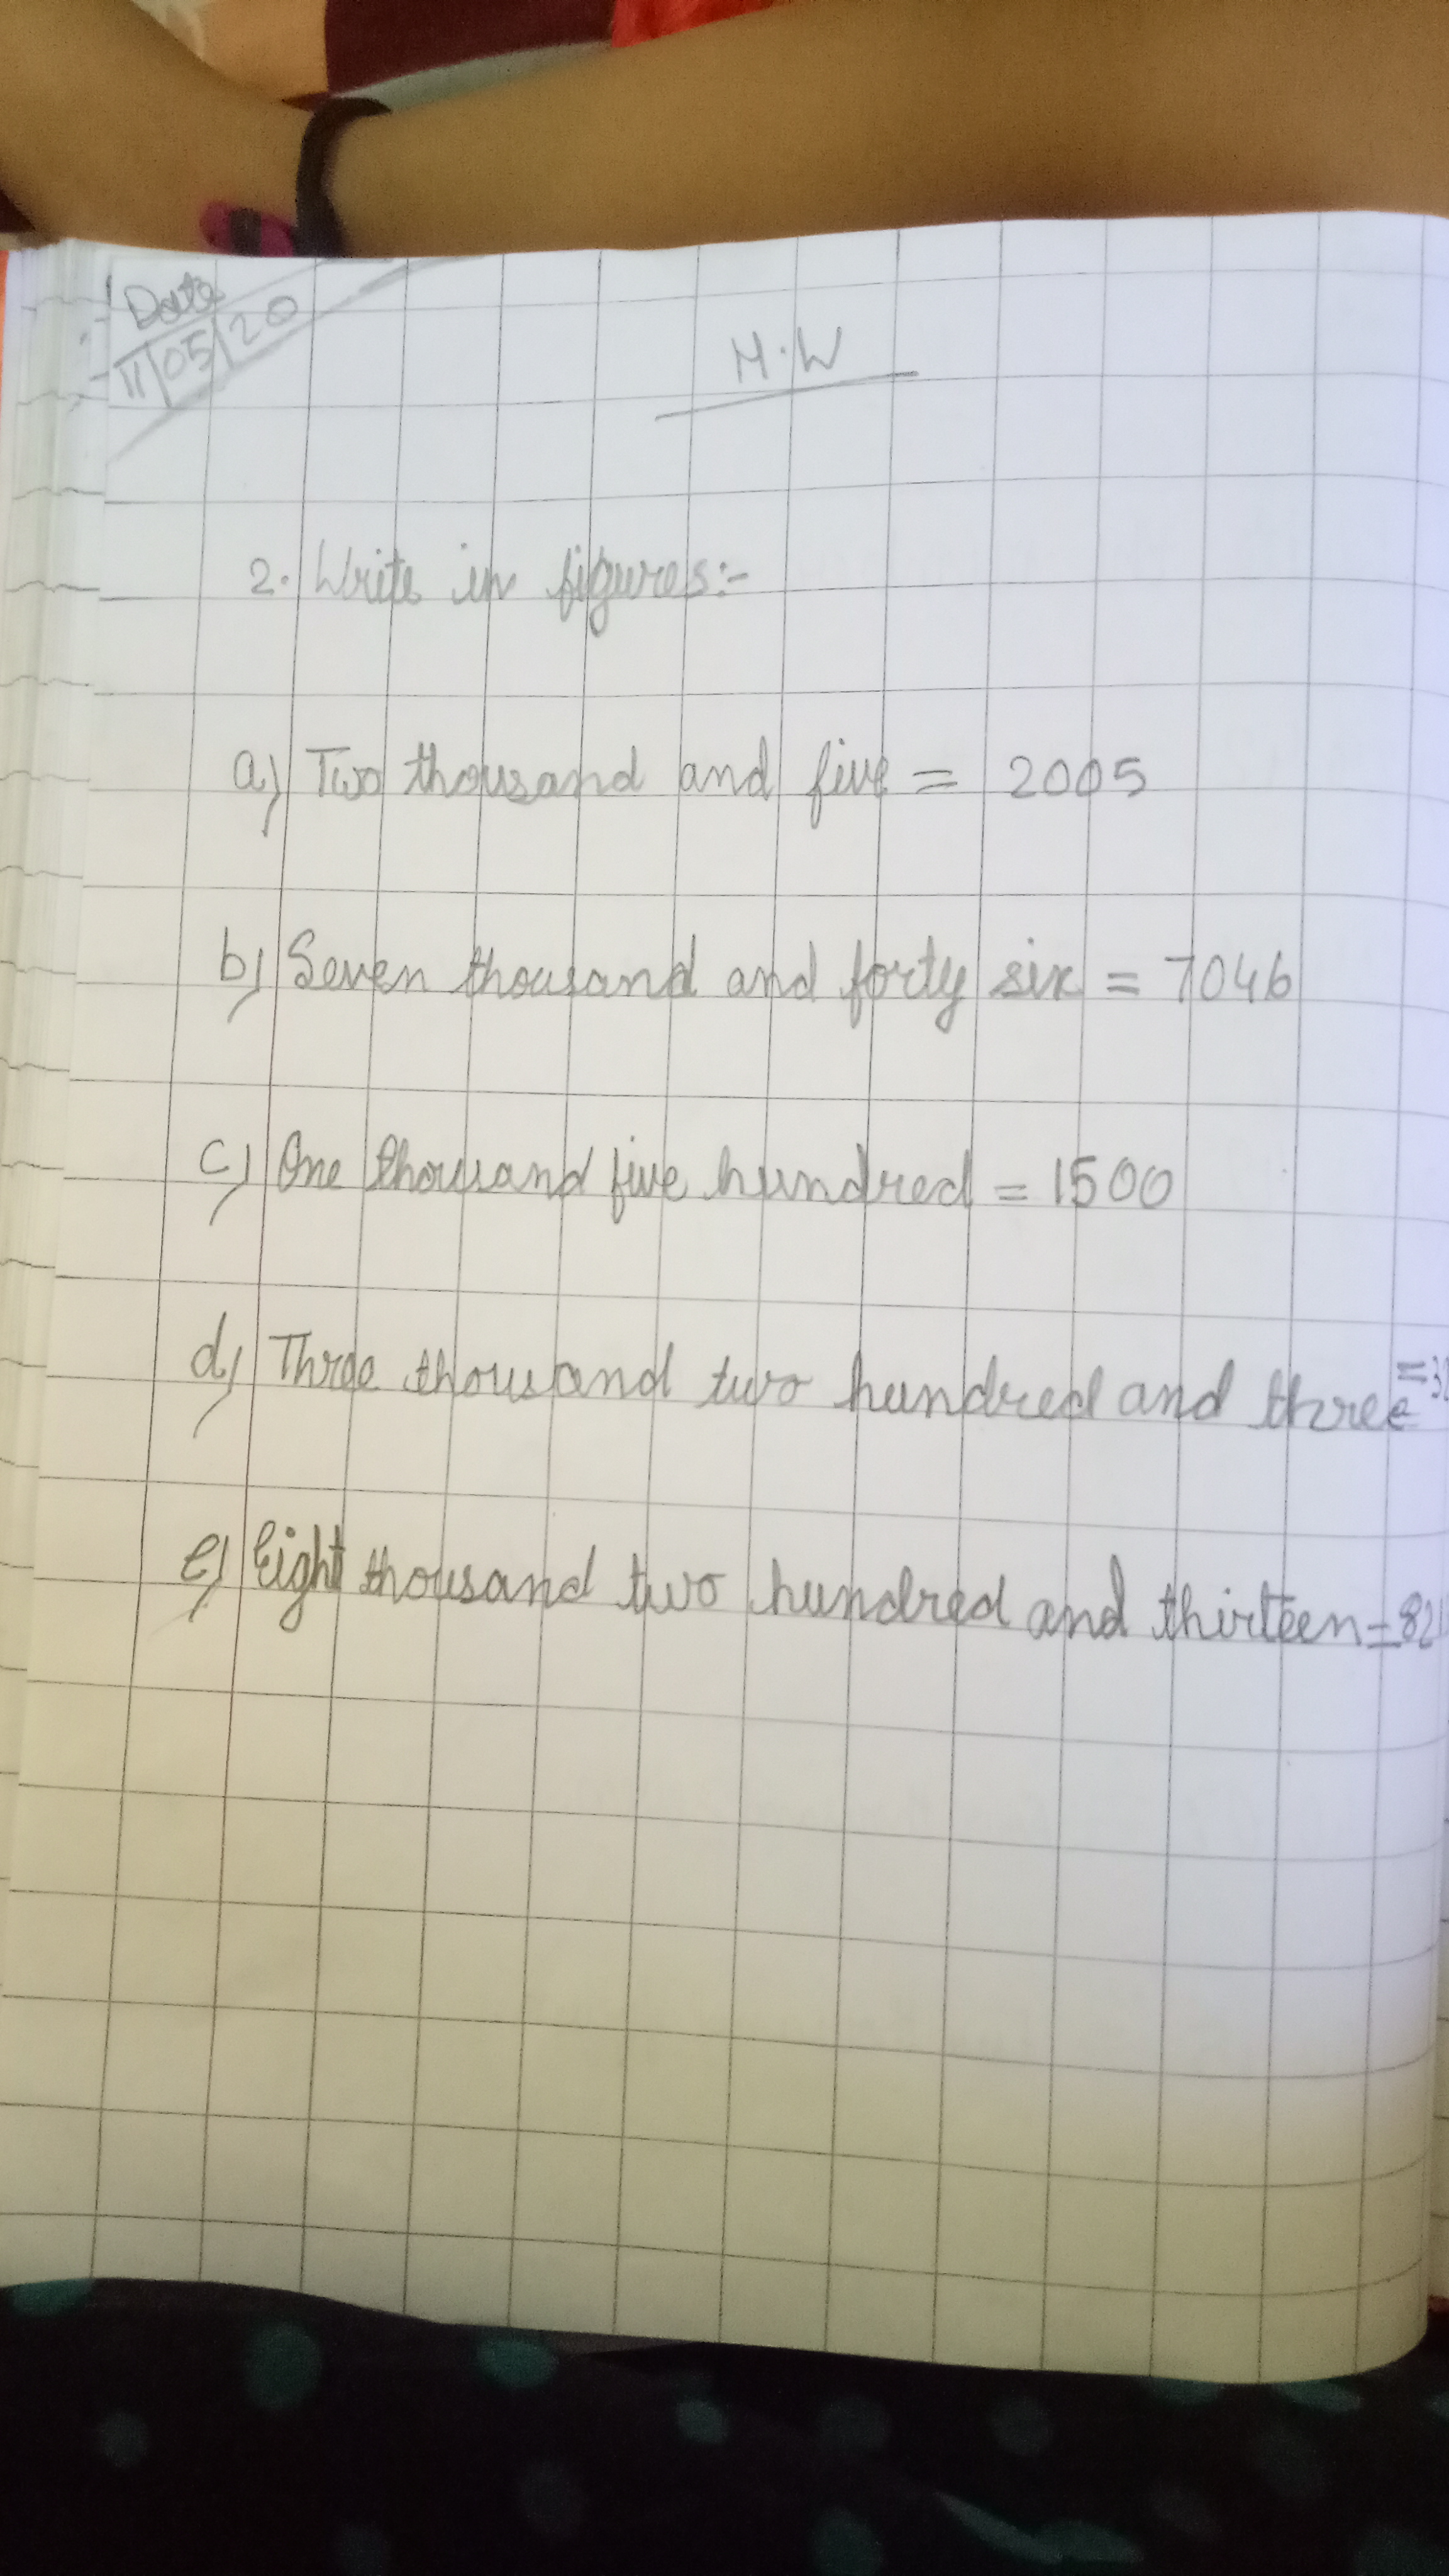 Date
11/05/20
H.W
2. Write in figures:-
a) Two thousand and five = 2005
b) Seven thousand and forty six = 7046
c) One thousand five hundred = 1500
d) Three thousand two hundred and three =
e) Eight thousand two hundred and thirteen =